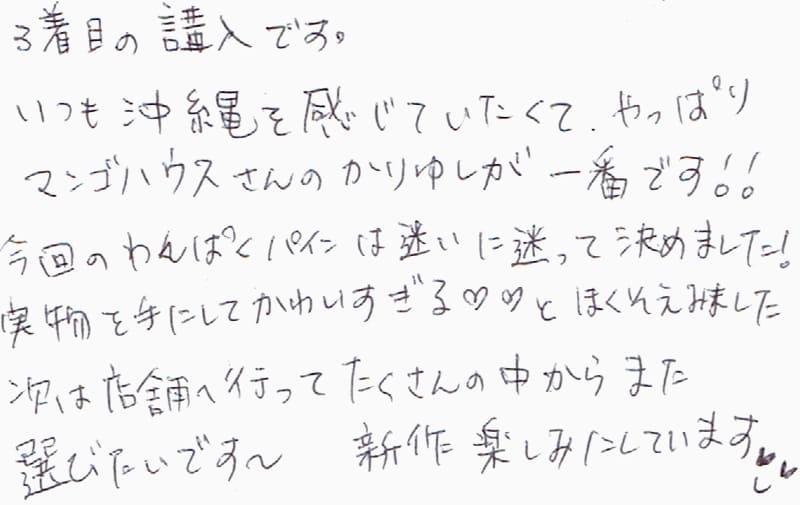 3着目の講入です。
いつも沖縄を感じていたくて、やっぱり
マンゴハウスさんのかりゆしが一番です!!
今回のわんぱくパインは迷いに迷って決めました!
実物を手にしてかわいすぎる♡♡とほくそえみました
次は店舗へ行ってたくさんの中からまた
選びたいです〜 新作楽しみにしています